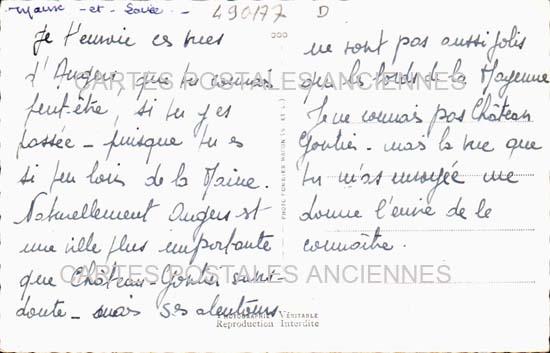 Maine - et - Loire. -
490177 D
Je t'envoie ces vues
d'Angers, que tu connais
peut-être, si tu y es
passée - puisque tu es
si peu loin de la Maine.
Naturellement Angers est
une ville plus importante
que Château-Gontier sans-
doute - mais ses alentours
ne sont pas aussi jolis
que les bords de la Mayenne
Je ne connais pas Château
Gontier - mais la vue que
tu m'as envoyée me
donne l'envie de le
connaître.
CARTES POSTALES ANCIENNES
CARTES POSTALES ANCIENNES
PHOTOGRAPHIE VÉRITABLE
Reproduction Interdite